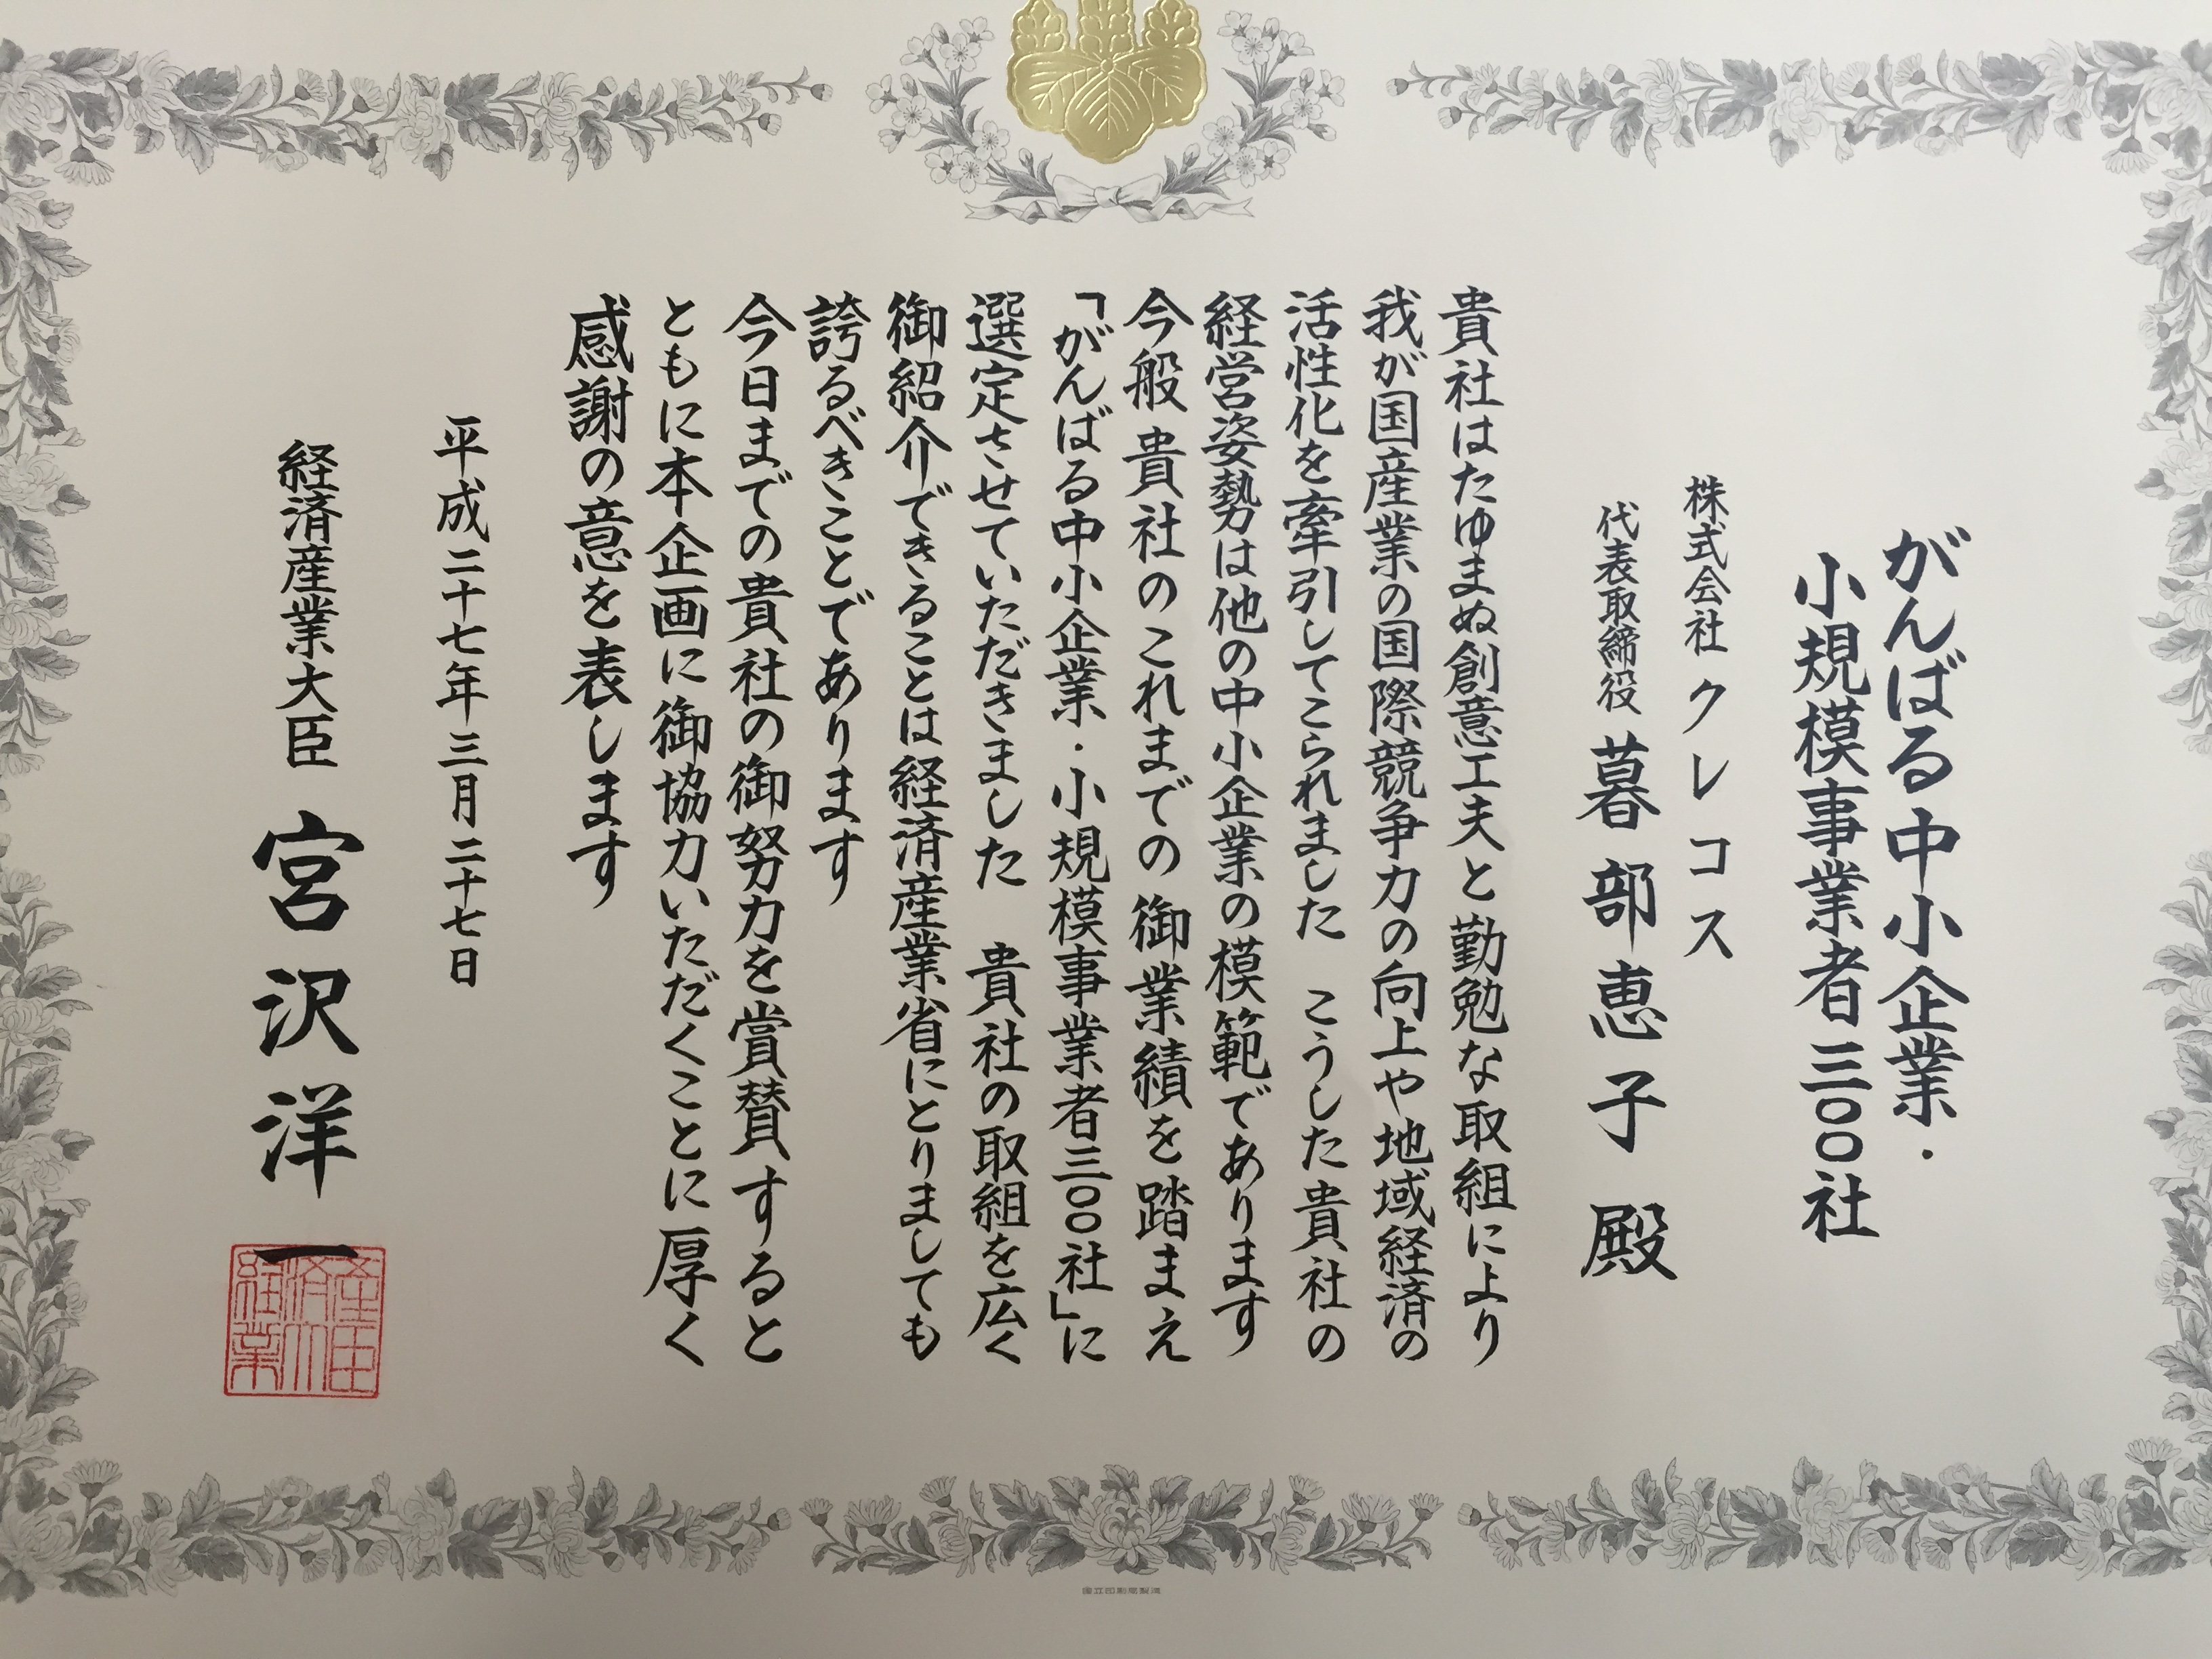 がんばる中小企業・
小規模事業者三〇〇社
株式会社クレコス
代表取締役 暮部恵子 殿
貴社はたゆまぬ創意工夫と勤勉な取組により
我が国産業の国際競争力の向上や地域経済の
活性化を牽引してこられました こうした貴社の
経営姿勢は他の中小企業の模範であります
今般 貴社のこれまでの御業績を踏まえ
「がんばる中小企業・小規模事業者三〇〇社」に
選定させていただきました 貴社の取組を広く
御紹介できることは経済産業省にとりましても
誇るべきことであります
今日までの貴社の御努力を賞賛すると
ともに本企画に御協力いただくことに厚く
感謝の意を表します
平成二十七年三月二十七日
経済産業大臣 宮沢洋一
国立印刷局製造